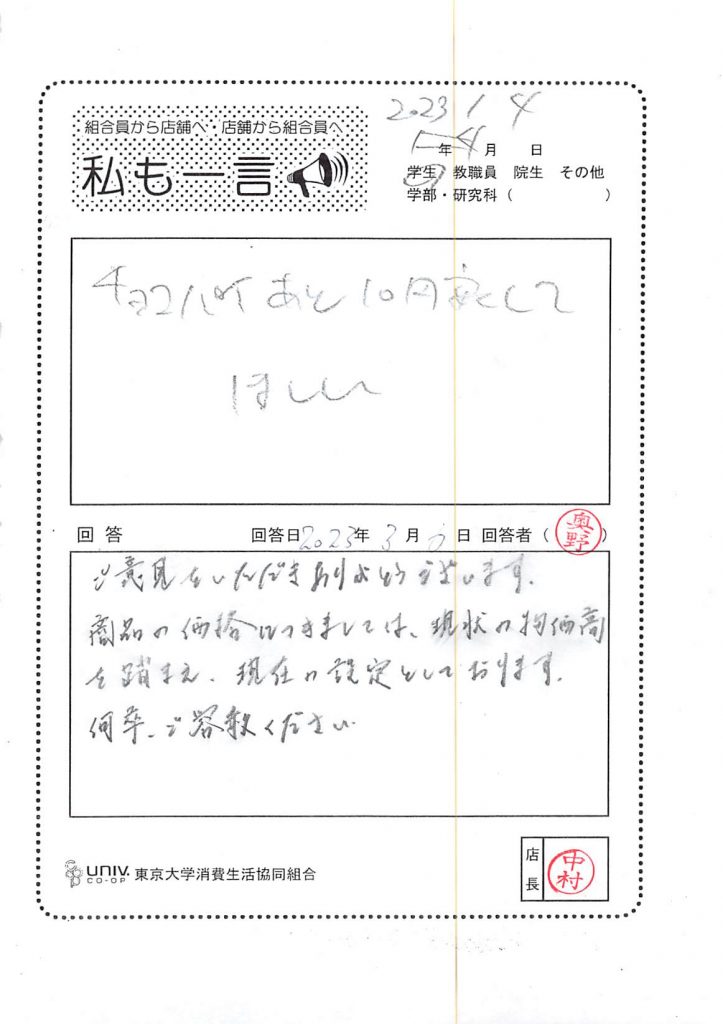 組合員から店舗へ・店舗から組合員へ
私も一言
2023 1 4
年 月 日
学生 教職員 院生 その他
学部・研究科（ ）
チョコパイあと10円安くして
ほしい
回答 回答日2023年 3月 日 回答者（奥野）
ご意見をいただきありがとうございます。
商品の価格につきましては、現状の物価高
を踏まえ、現在の設定としております。
何卒、ご容赦ください
UNIV. CO-OP 東京大学消費生活協同組合
店長 中村